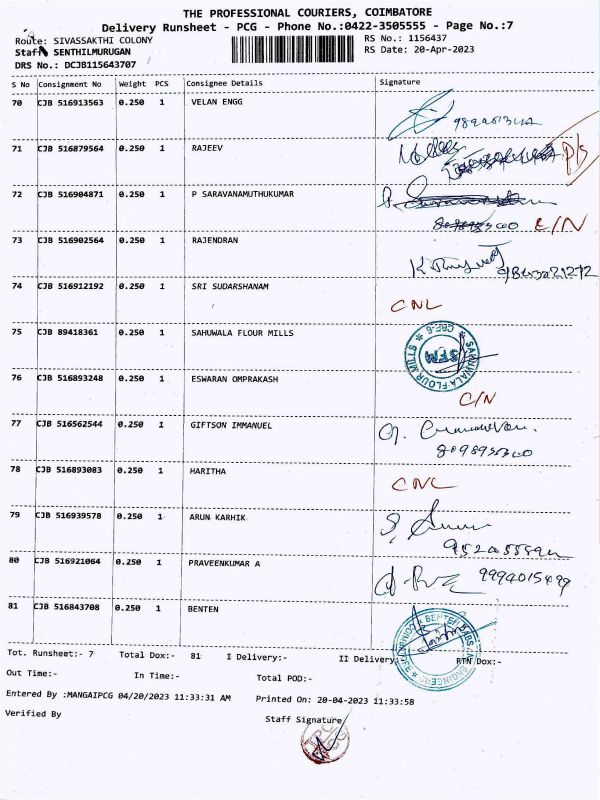 THE PROFESSIONAL COURIERS, COIMBATORE
Delivery Runsheet - PCG - Phone No.:0422-3505555 - Page No.:7
Route: SIVASSAKTHI COLONY RS No.: 1156437
Staff SENTHILMURUGAN RS Date: 20-Apr-2023
DRS No.: DCJB115643707
S No Consignment No Weight PCS Consignee Details Signature
70 CJB 516913563 0.250 1 VELAN ENGG
71 CJB 516879564 0.250 1 RAJEEV P/S
72 CJB 516904871 0.250 1 P SARAVANAMUTHUKUMAR
C/N
73 CJB 516902564 0.250 1 RAJENDRAN
74 CJB 516912192 0.250 1 SRI SUDARSHANAM
CNL
75 CJB 89418361 0.250 1 SAHUWALA FLOUR MILLS SAHUWALA FLOUR MILLS SFM CBE-6
76 CJB 516893248 0.250 1 ESWARAN OMPRAKASH
C/N
77 CJB 516562544 0.250 1 GIFTSON IMMANUEL
8098935300
78 CJB 516893083 0.250 1 HARITHA
CNL
79 CJB 516939578 0.250 1 ARUN KARHIK
80 CJB 516921064 0.250 1 PRAVEENKUMAR A 9994015499
81 CJB 516843708 0.250 1 BENTEN
Tot. Runsheet:- 7 Total Dox:- 81 I Delivery:- II Delivery:- RTN Dox:-
Out Time:- In Time:- Total POD:-
Entered By :MANGAIPCG 04/20/2023 11:33:31 AM Printed On: 20-04-2023 11:33:58
Verified By Staff Signature